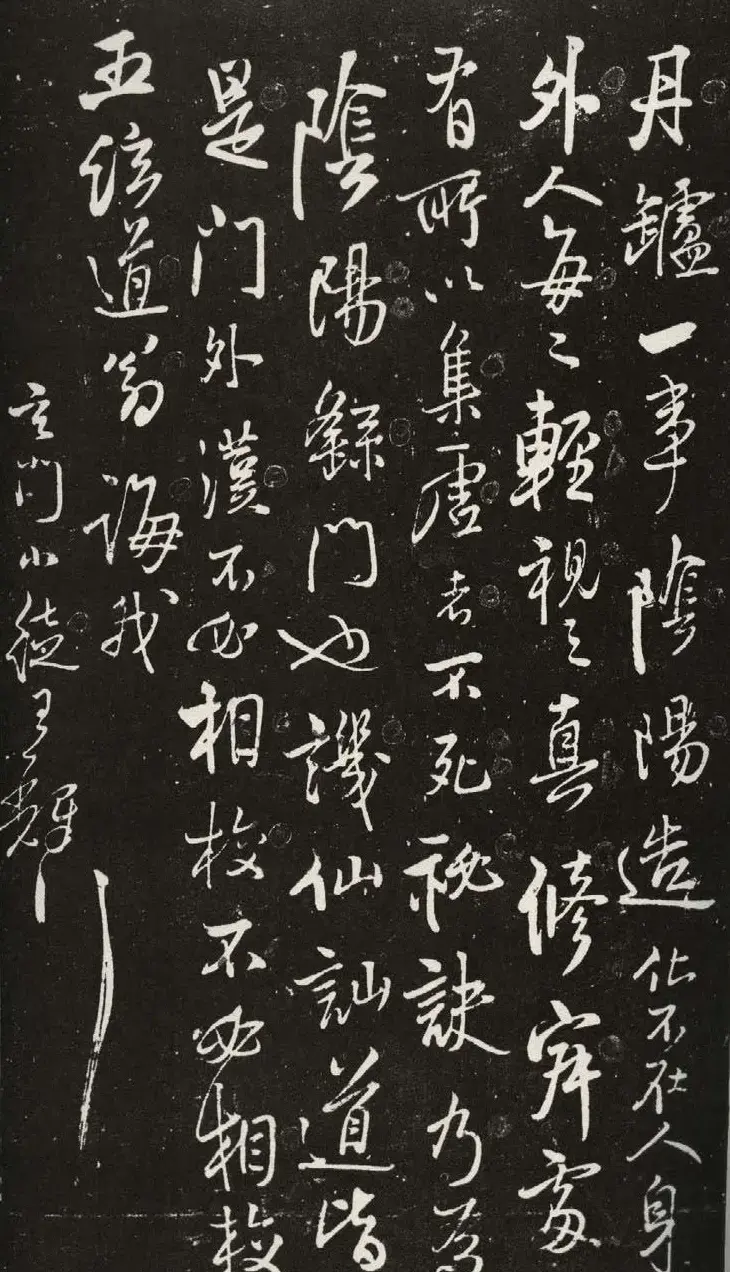 丹鑪一事陰陽造化不在人身
外人每々輕視之真修寂處
看所以集虛者不死秘訣乃為
陰陽繇門也譏仙訕道皆
是門外漢不必相校不必相較
五弦道翁誨我
玄門小徒王輝